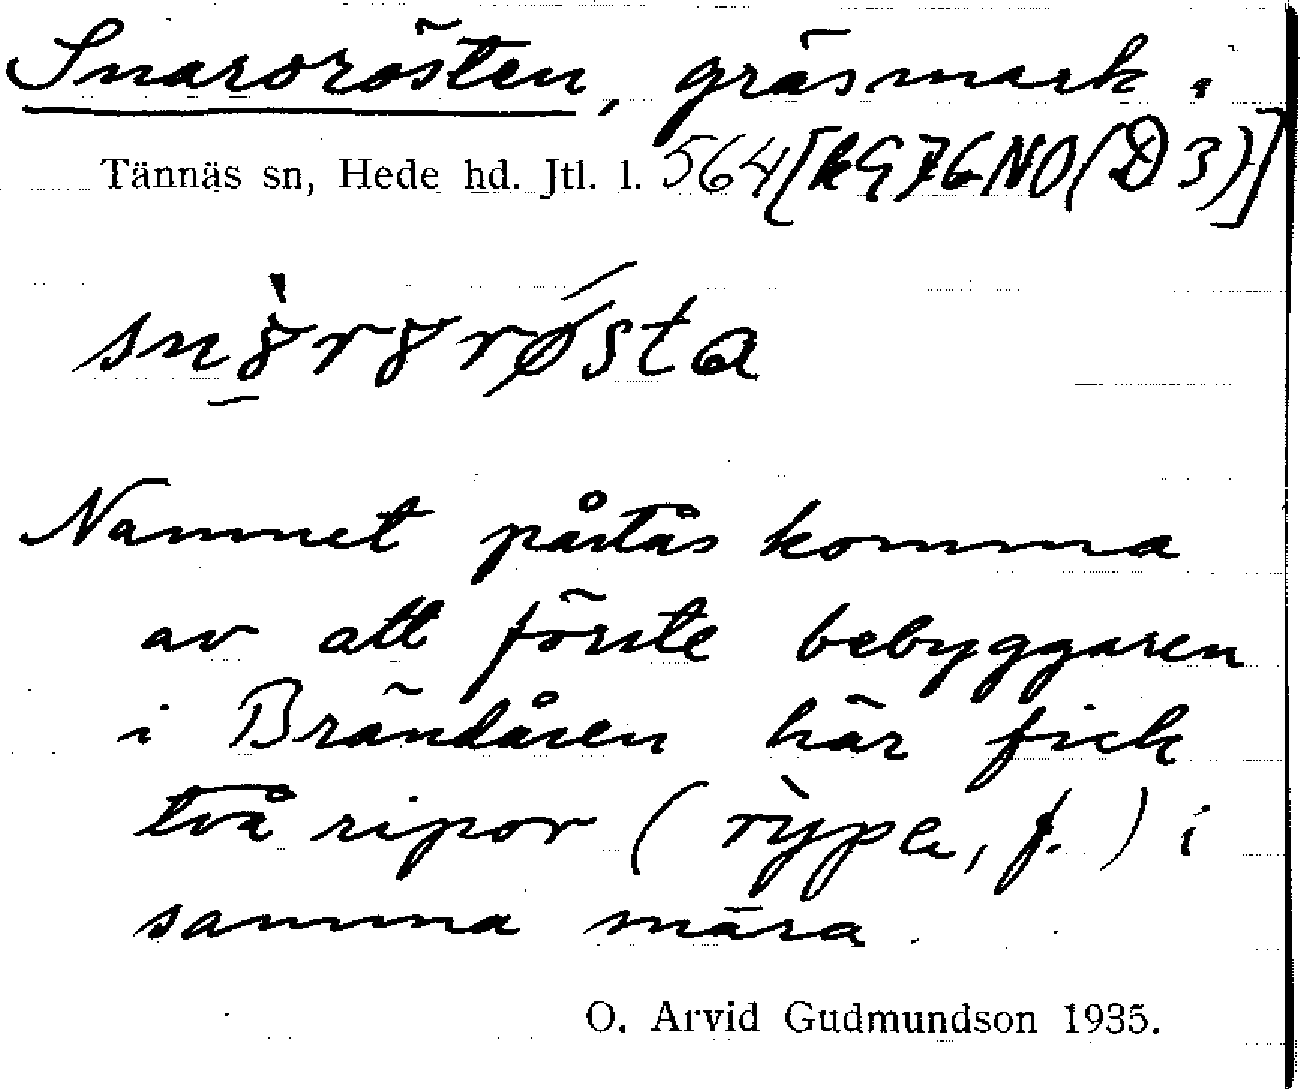 Snarorösten, gräsmark i
Tännäs sn, Hede hd. Jtl. l. 564
Namnet påstås komma
av att förste bebyggaren
i Brändåsen här fick
två ripor (rỳpa, f.) i
samma snära.
O. Arvid Gudmundson 1935.